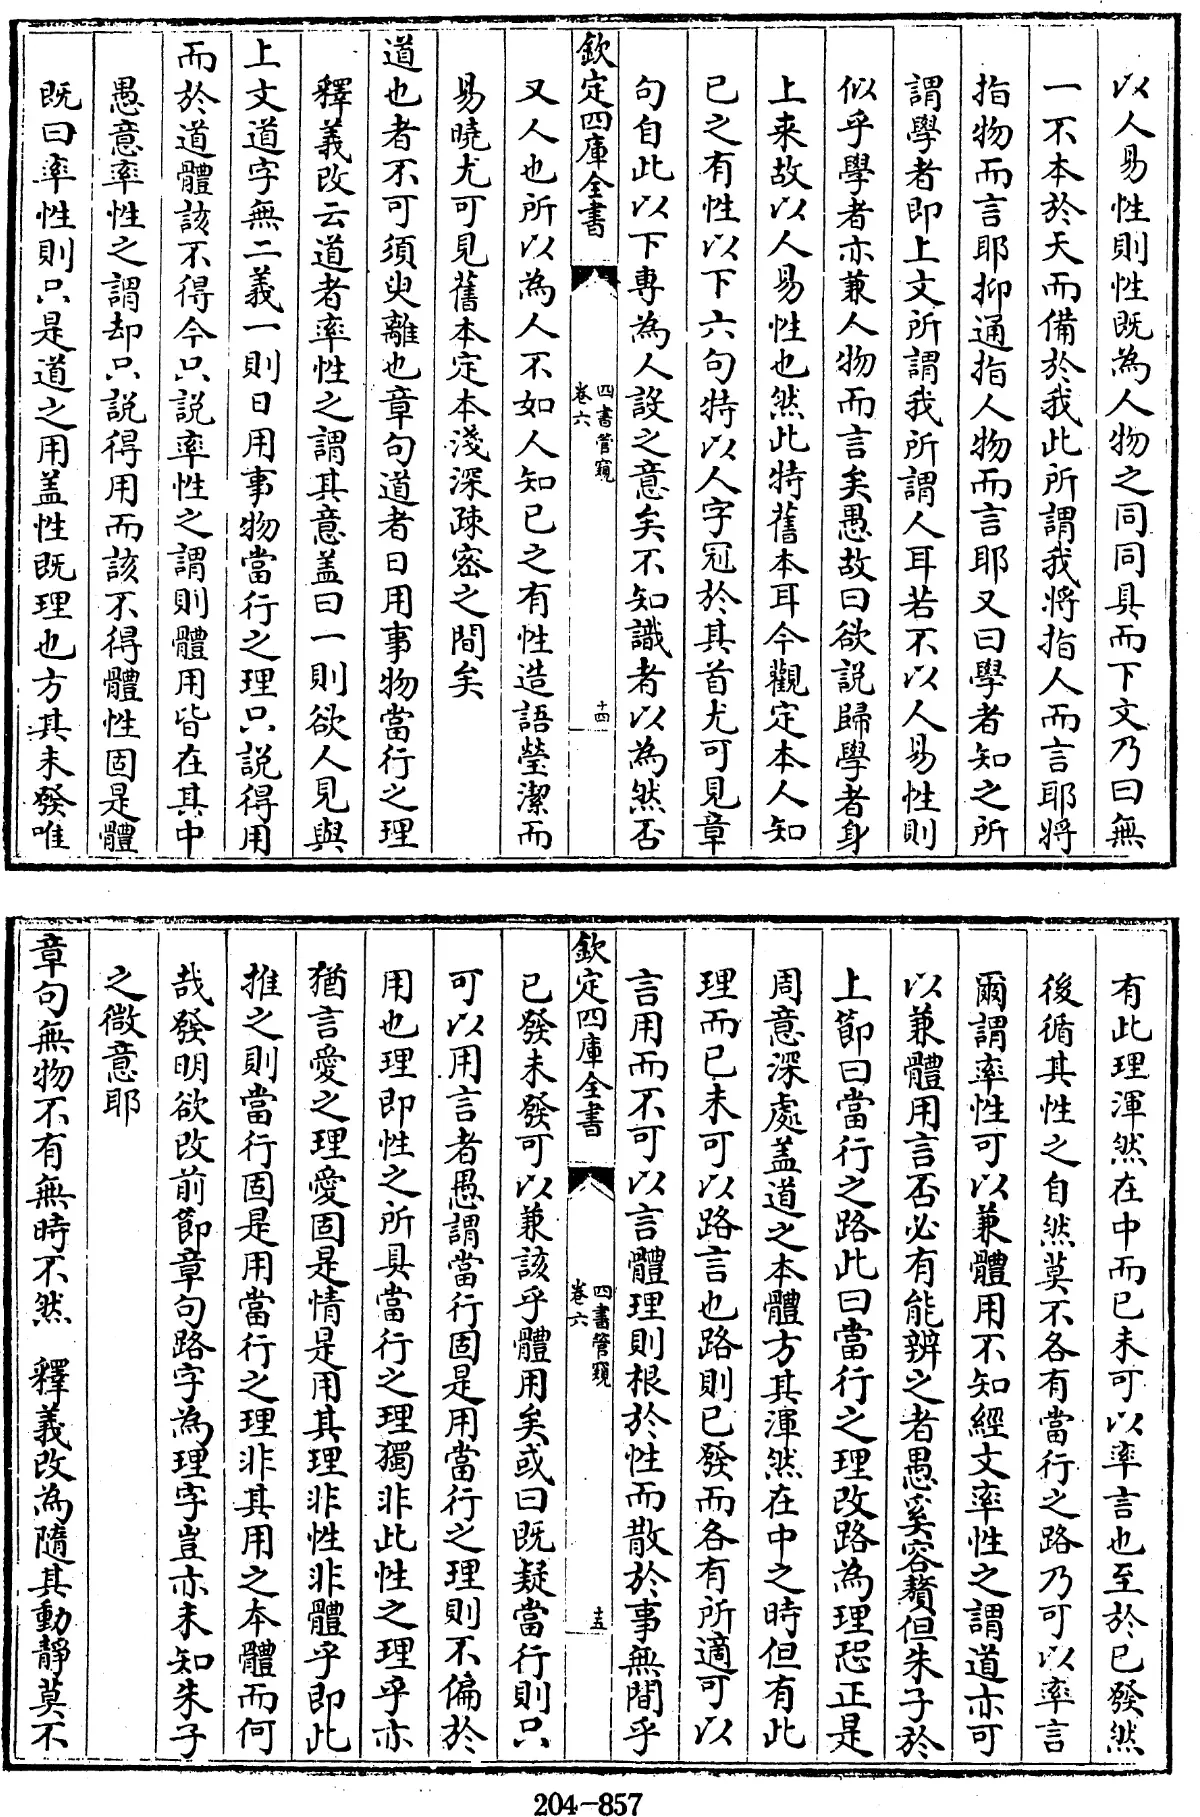 以人易性則性既為人物之同同具而下文乃曰無
一不本於天而備於我此所謂我將指人而言耶將
指物而言耶抑通指人物而言耶又曰學者知之所
謂學者即上文所謂我所謂人耳若不以人易性則
似乎學者亦兼人物而言矣愚故曰欲説歸學者身
上来故以人易性也然此特舊本耳今觀定本人知
已之有性以下六句特以人字冠於其首尤可見章
句自此以下專為人設之意矣不知識者以為然否
欽定四庫全書
四書管窺
卷六
十四
又人也所以為人不如人知已之有性造語瑩潔而
易曉尤可見舊本定本淺深疎宻之間矣
道也者不可須臾離也章句道者日用事物當行之理
釋義改云道者率性之謂其意盖曰一則欲人見與
上文道字無二義一則日用事物當行之理只説得用
而於道體該不得今只説率性之謂則體用皆在其中
愚意率性之謂却只説得用而該不得體性固是體
既曰率性則只是道之用盖性既理也方其未發唯
有此理渾然在中而已未可以率言也至於已發然
後循其性之自然莫不各有當行之路乃可以率言
爾謂率性可以兼體用不知經文率性之謂道亦可
以兼體用言否必有能辨之者愚奚容贅但朱子於
上節曰當行之路此曰當行之理改路為理恐正是
周意深處盖道之本體方其渾然在中之時但有此
理而已未可以路言也路則已發而各有所適可以
言用而不可以言體理則根於性而散於事無間乎
欽定四庫全書
四書管窺
卷六
十五
已發未發可以兼該乎體用矣或曰既疑當行則只
可以用言者愚謂當行固是用當行之理則不偏於
用也理即性之所具當行之理獨非此性之理乎亦
猶言愛之理愛固是情是用其理非性非體乎即此
推之則當行固是用當行之理非其用之本體而何
哉發明欲改前節章句路字為理字豈亦未知朱子
之微意耶
章句無物不有無時不然　釋義改為隨其動靜莫不
204-857